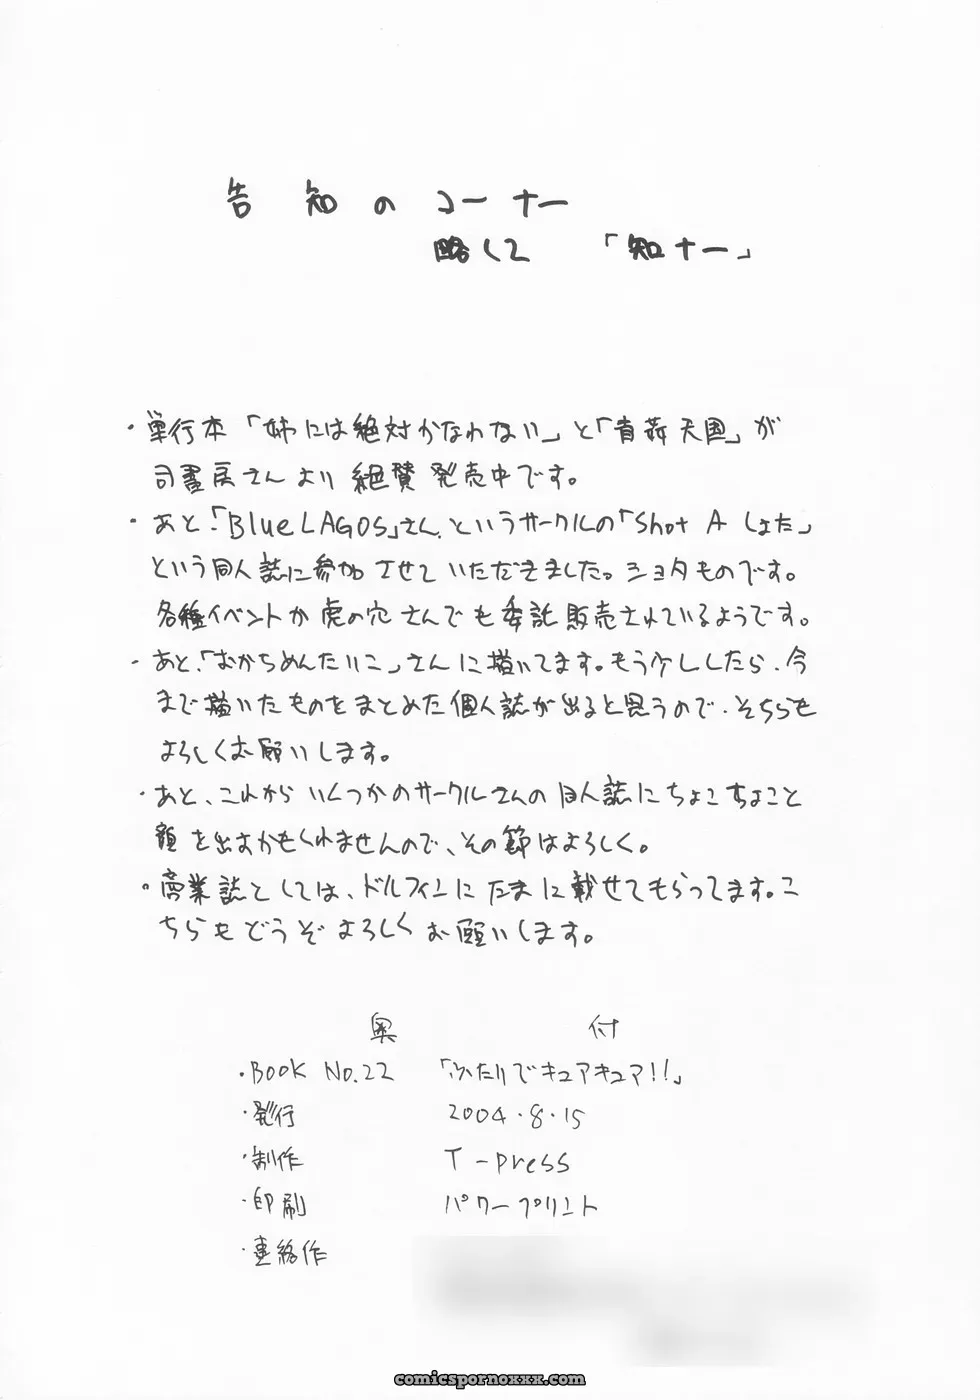 告知のコーナー
略して 「知ナー」
・単行本「姉には絶対かなわない」と「首姦天国」が
司書房さんより絶賛発売中です。
・あと、「Blue LAGOS」さん、というサークルの「Shot A しょた」
という同人誌に参加させていただきました。ショタものです。
各種イベントか虎の穴さんでも委託販売されているようです。
・あと、「おかちめんたいこ」さんに描いてます。もう少ししたら、今
まで描いたものをまとめた個人誌が出ると思うので、そちらも
よろしくお願いします。
・あと、これからいくつかのサークルさんの同人誌にちょこちょこと
顔を出すかもしれませんので、その節はよろしく。
・商業誌としては、ドルフィンにたまに載せてもらってます。こ
ちらもどうぞよろしくお願いします。
奥 付
・BOOK No.22 「ふたりでキュアキュア!!」
・発行 2004.8.15
・制作 T-press
・印刷 パワープリント
・連絡作
comicspornoxxx.com